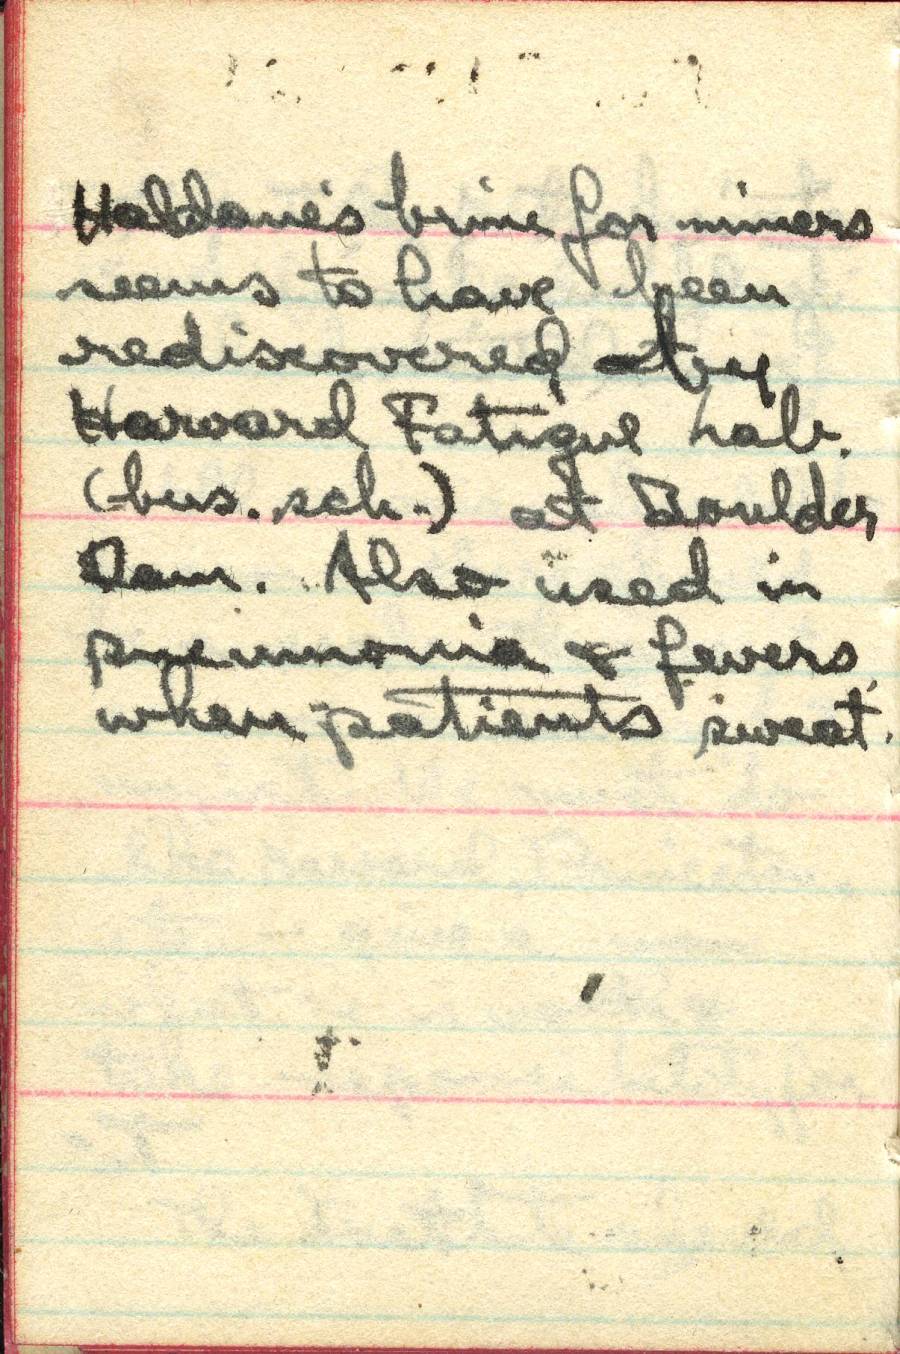 Haldane's brine for miners
seems to have been
rediscovered by
Harvard Fatigue Lab.
(bus. sch.) at Boulder
Dam. Also used in
pneumonia & fevers
when patients sweat.